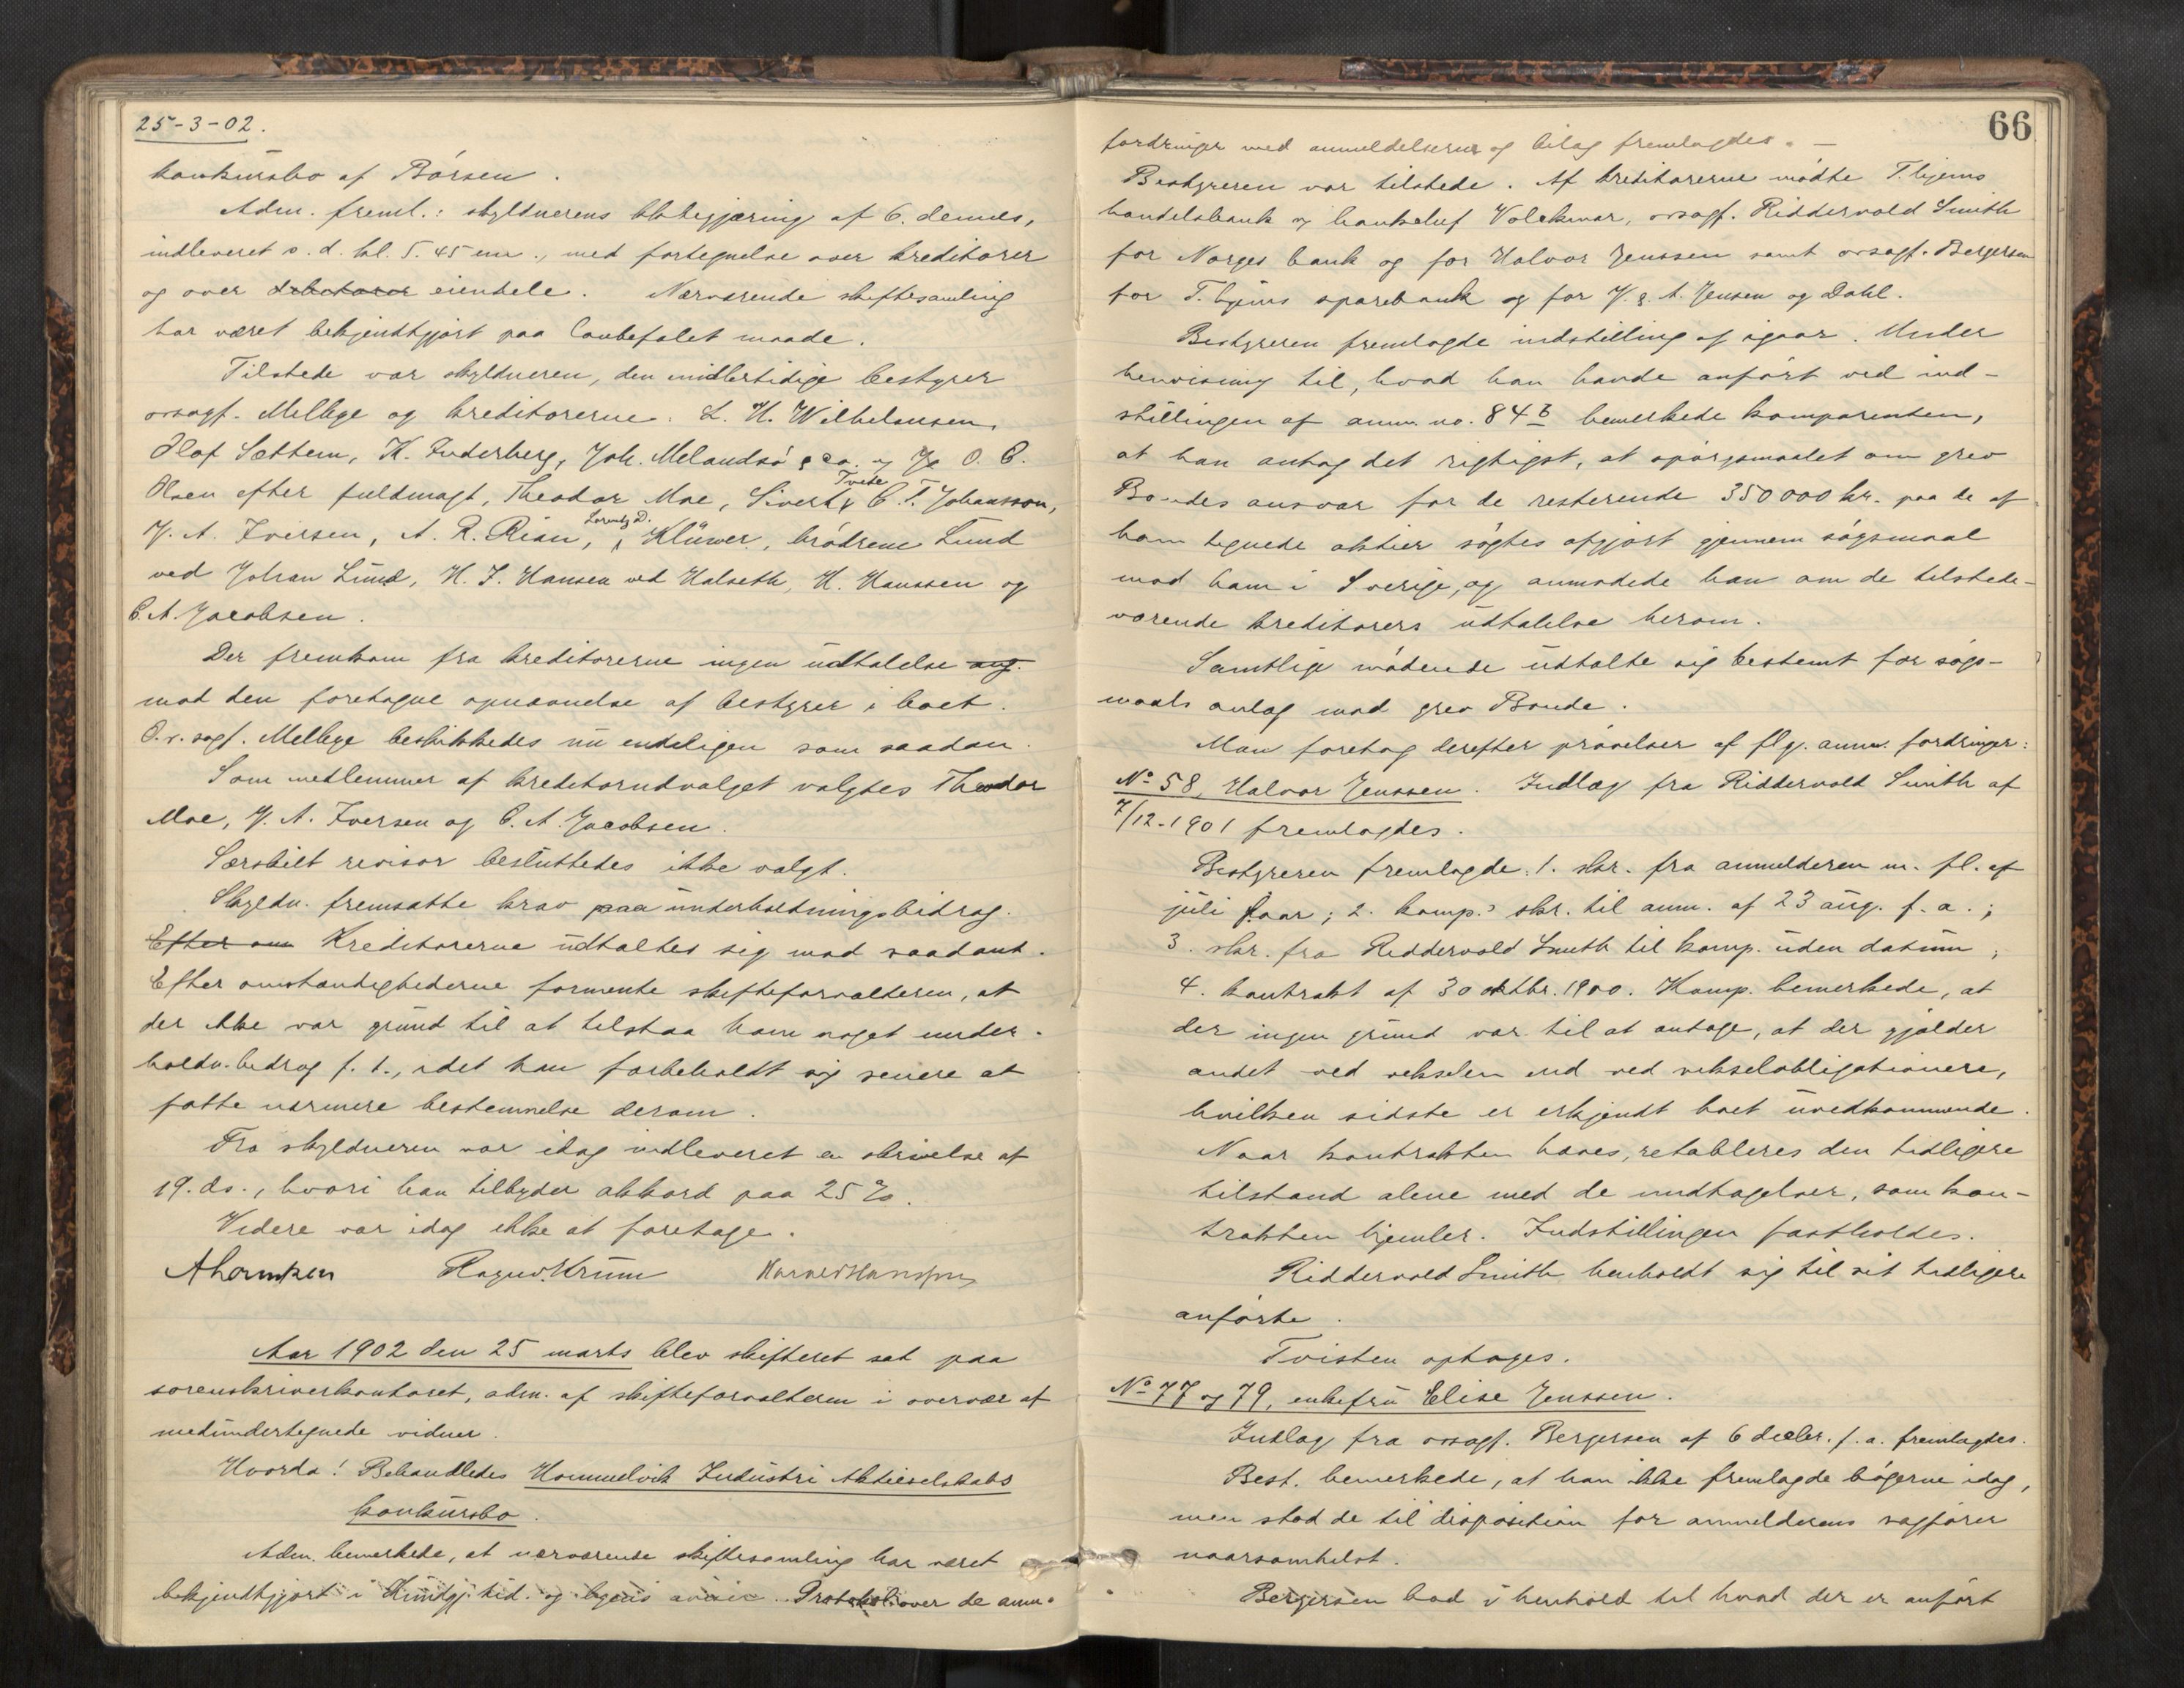 25-3-02.
konkursbo af Børsen.
Adm. freml.: skyldnerens bobegjæring af 6. dennes,
indleveret s. d. kl. 5.45 em., med fortegnelse over kreditorer
og over debitorer eiendele. Nærværende skiftesamling
har været bekjendtgjort paa lovbefalet maade.
Tilstede var skyldneren, den midlertidige bestyrer
orsagf. Mellbye og kreditorerne: L. H. Wilhelmsen,
Olaf Sættem, K. Inderberg, Joh. Melandsø & co. og O. C.
Olsen efter fuldmagt, Theodor Moe, Sivert Tvede, C. F. Johansson,
J. A. Iversen, A. R. Rian, Lorentz D. Klüwer, brødrene Lund
ved Johan Lund, H. J. Hansen ved Halseth, H. Hanssen og
C. A. Jacobsen.
Der fremkom fra kreditorerne ingen udtalelse ang.
mod den foretagne opnævnelse af bestyrer i boet.
O.r.sagf. Mellbye beskikkedes nu endeligen som saadan.
Som medlemmer af kreditorudvalget valgtes Theodor
Moe, J. A. Iversen og C. A. Jacobsen.
Særskilt revisor besluttedes ikke valgt.
Skyldn. fremsatte krav paa underholdningsbidrag.
Efter om Kreditorerne udtaltes sig mod saadant.
Efter omstændighederne formente skifteforvalteren, at
der ikke var grund til at tilstaa ham noget under-
holdn.bidrag f. t., idet han forbeholdt sig senere at
fatte nærmere bestemmelse derom.
Fra skyldneren var idag indleveret en skrivelse af
19. ds., hvori han tilbyder akkord paa 25 %.
Videre var idag ikke at foretage.
Ragnv. Krum Harald Hansen
Aar 1902 den 25 marts blev skifteret sat paa
sorenskriverkontoret, adm. af skifteforvalteren i overvær af
medundertegnede vidner.
Hvorda! Behandledes Hommelvik Industri Aktieselskabs
konkursbo.
Adm. bemerkede, at nærværende skiftesamling har været
bekjendtgjort i Kundgj. tid. og byens aviser. Protokol over de anm.
66
fordringer med anmeldelserne og bilag fremlagdes. —
Bestyreren var tilstede. Af kreditorerne mødte T.hjems
handelsbank og bankchef Volckmar, orsagf. Riddervold Smith
for Norges bank og for Halvor Jenssen samt orsagf. Bergersen
for T.hjems sparebank og for J. & A. Jensen og Dahl.
Bestyreren fremlagde indstilling af igaar. Under
henvisning til, hvad han havde anført ved ind-
stillingen af anm. no. 84 b bemerkede komparenten,
at han antog det rigtigst, at spørgsmaalet om grev
Bondes ansvar for de resterende 350000 kr. paa de af
ham tegnede aktier søgtes afgjort gjennem søgsmaal
mod ham i Sverige, og anmodede han om de tilstede-
værende kreditorers udtalelse herom.
Samtlige mødende udtalte sig bestemt for søgs-
maals anlæg mod grev Bonde.
Man foretog derefter prøvelser af flg. anm. fordringer:
No 58, Halvor Jenssen. Indlæg fra Riddervold Smith af
7/12-1901 fremlagdes.
Bestyreren fremlagde: 1. skr. fra anmelderen m. fl. af
juli f.aar; 2. komp.s skr. til anm. af 23 aug. f. a.;
3. skr. fra Riddervold Smith til komp. uden datum;
4. kontrakt af 30 oktbr. 1900. Komp. bemerkede, at
der ingen grund var til at antage, at der gjælder
andet ved vekselen end ved vekselobligationere,
hvilken sidste er erkjendt boet uvedkommende.
Naar kontrakten hæves, retableres den tidligere
tilstand alene med de undtagelser, som kon-
trakten hjemler. Indstillingen fastholdes.
Riddervold Smith henholdt sig til sit tidligere
anførte.
Tvisten optages.
No 77 og 79, enkefru Elise Jenssen.
Indlæg fra orsagf. Bergersen af 6 decbr. f. a. fremlagdes.
Best. bemerkede, at han ikke fremlagde bøgerne idag,
men stod de til disposition for anmelderens sagfører
naarsomhelst.
Bergersen bad i henhold til hvad der er anført